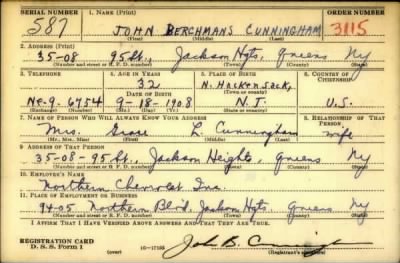 SERIAL NUMBER 1. NAME (Print) ORDER NUMBER
587 JOHN BERCHMANS CUNNINGHAM 3115
(First) (Middle) (Last)
2. ADDRESS (Print)
35-08 95 St., Jackson Hgts, Queens Ny
(Number and street or R. F. D. number) (Town) (County) (State)
3. TELEPHONE 4. AGE IN YEARS 5. PLACE OF BIRTH 6. COUNTRY OF CITIZENSHIP
32 N. Hackensack,
DATE OF BIRTH (Town or county)
Ne.9-6754 9-18-1908 N.J. U.S.
(Exchange) (Number) (Mo.) (Day) (Yr.) (State or country)
7. NAME OF PERSON WHO WILL ALWAYS KNOW YOUR ADDRESS 8. RELATIONSHIP OF THAT PERSON
Mrs. Grace L. Cunningham wife
(Mr., Mrs., Miss) (First) (Middle) (Last)
9. ADDRESS OF THAT PERSON
35-08-95 St., Jackson Heights, Queens Ny
(Number and street or R. F. D. number) (Town) (County) (State)
10. EMPLOYER'S NAME
Northern Chevrolet Inc.
11. PLACE OF EMPLOYMENT OR BUSINESS
94-05 Northern Blvd, Jackson Hgts, Queens Ny
(Number and street or R. F. D. number) (Town) (County) (State)
I AFFIRM THAT I HAVE VERIFIED ABOVE ANSWERS AND THAT THEY ARE TRUE.
REGISTRATION CARD
D. S. S. Form 1 16-17105 John B. Cunningham
(Registrant's signature)